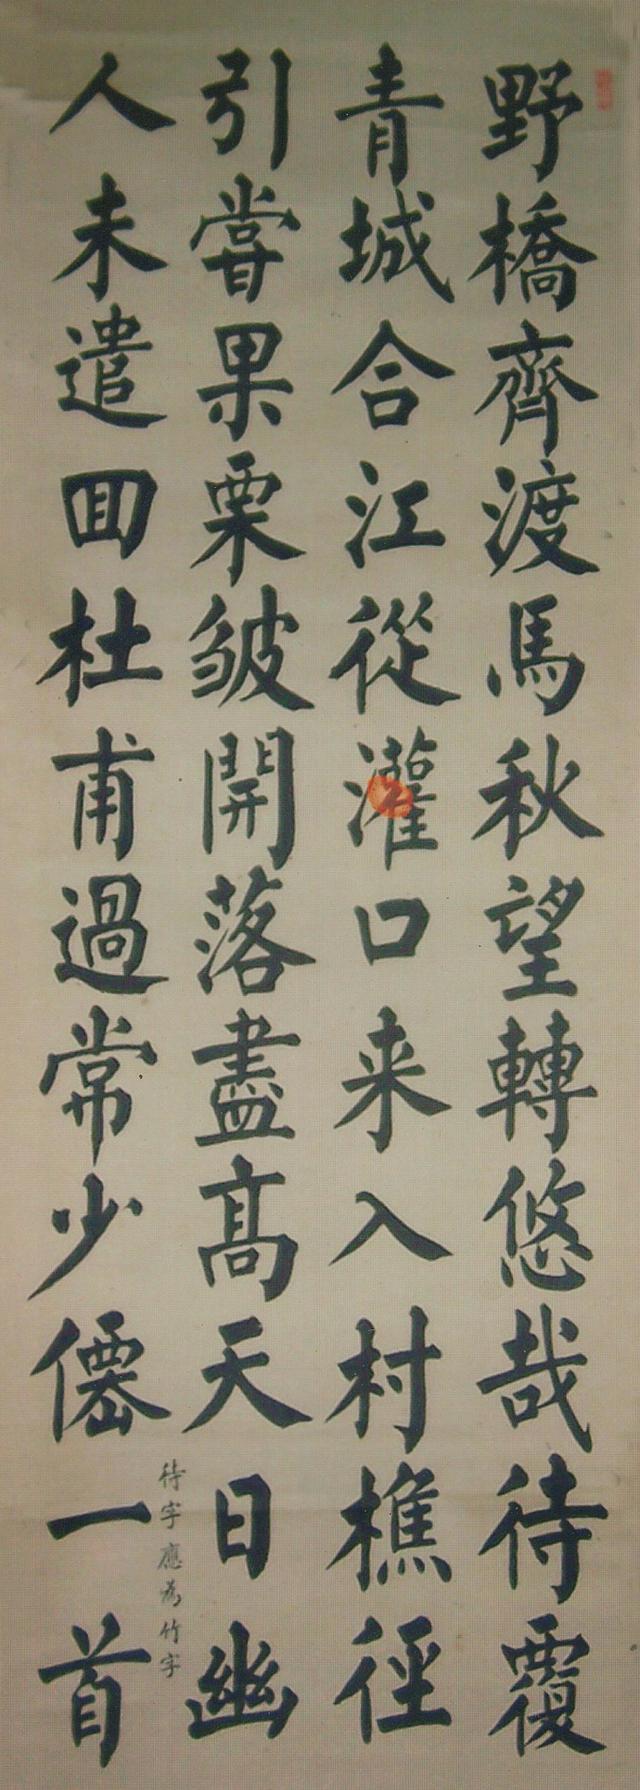 野橋齊渡馬秋望轉悠哉待覆
青城合江從灌口来入村樵徑
引嘗果栗皱開落盡髙天日幽
人未遣囬杜甫過常少僊一首
待字應為竹字